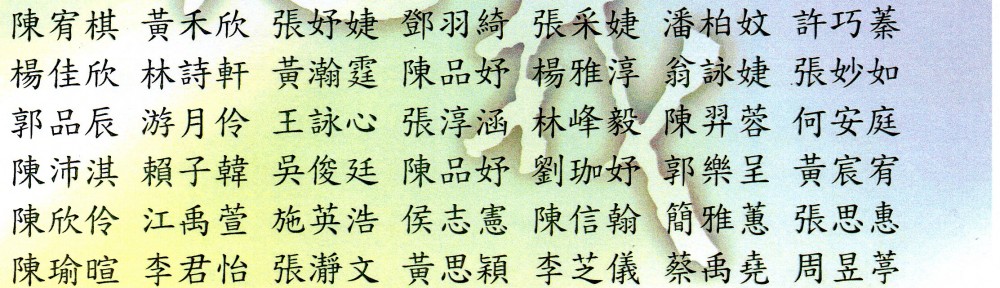 陳宥棋 黃禾欣 張妤婕 鄧羽綺 張采婕 潘柏妏 許巧蓁
楊佳欣 林詩軒 黃瀚霆 陳品妤 楊雅淳 翁詠婕 張妙如
郭品辰 游月伶 王詠心 張淳涵 林峰毅 陳羿蓉 何安庭
陳沛淇 賴子韓 吳俊廷 陳品妤 劉珈妤 郭樂呈 黃宸宥
陳欣伶 江禹萱 施英浩 侯志憲 陳信翰 簡雅蕙 張思惠
陳瑜暄 李君怡 張瀞文 黃思穎 李芝儀 蔡禹堯 周昱葶